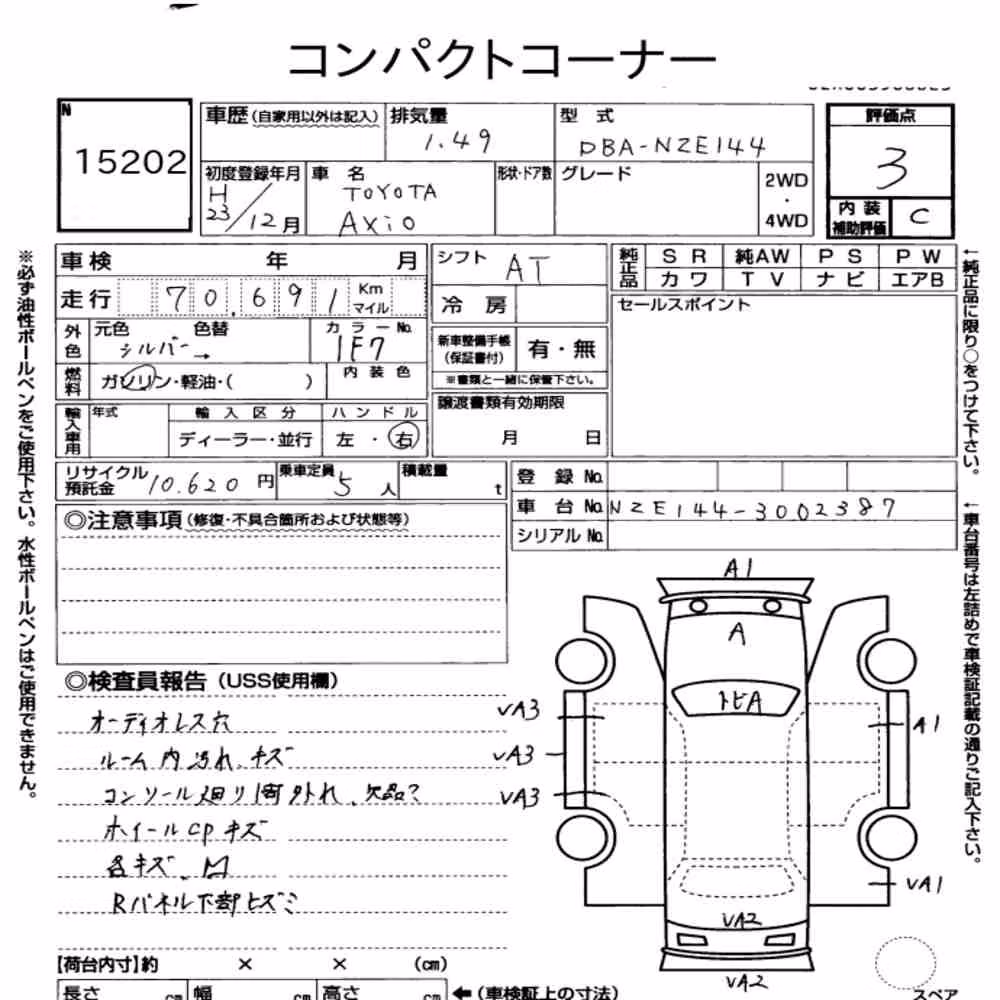 コンパクトコーナー
N
15202
車歴 (自家用以外は記入)
排気量
1.49
型 式
DBA-NZE144
評価点
3
初度登録年月
H
23/12月
車 名
TOYOTA
AXiO
形状・ドア数
グレード
2WD
・
4WD
内 装
補助評価
C
車検 年 月
走行 70.691 Km
マイル
シフト AT
冷 房
純正品
S R 純AW P S P W
カ ワ T V ナ ビ エアB
セールスポイント
外色
元色 色替
シルバー →
カ ラ ー No.
1F7
燃料
ガソリン・軽油・( )
内 装 色
新車整備手帳
(保証書付)
有・無
※書類と一緒に保管下さい。
輸入車用
年式
輸 入 区 分
ディーラー・並行
ハ ン ド ル
左 ・ 右
譲渡書類有効期限
月 日
リサイクル
預託金 10.620 円
乗車定員 5 人
積載量 t
登 録 No.
車 台 No. NZE144-3002387
シリアル No.
◎注意事項 (修復・不具合箇所および状態等)
◎検査員報告 (USS使用欄)
オーディオレス穴
ルーム内汚れ、キズ
コンソール廻り1箇外れ、欠品?
ホイールCPキズ
各キズ、凹
Rパネル下部ヒズミ
A1
A
トビA
VA3
VA3
VA3
A1
VA1
VA2
VA2
スペア
【荷台内寸】約 × × (cm)
長さ cm 幅 cm 高さ cm ←(車検証上の寸法)
※必ず油性ボールペンをご使用下さい。水性ボールペンはご使用できません。
←純正品に限り○をつけて下さい。
←車台番号は左詰めで車検証記載の通りご記入下さい。